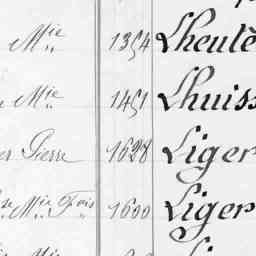 Mie 1354 Lheulè
Mie 1451 Lhuiss
Pierre 1628 Liger
Mie Fois 1600 Liger